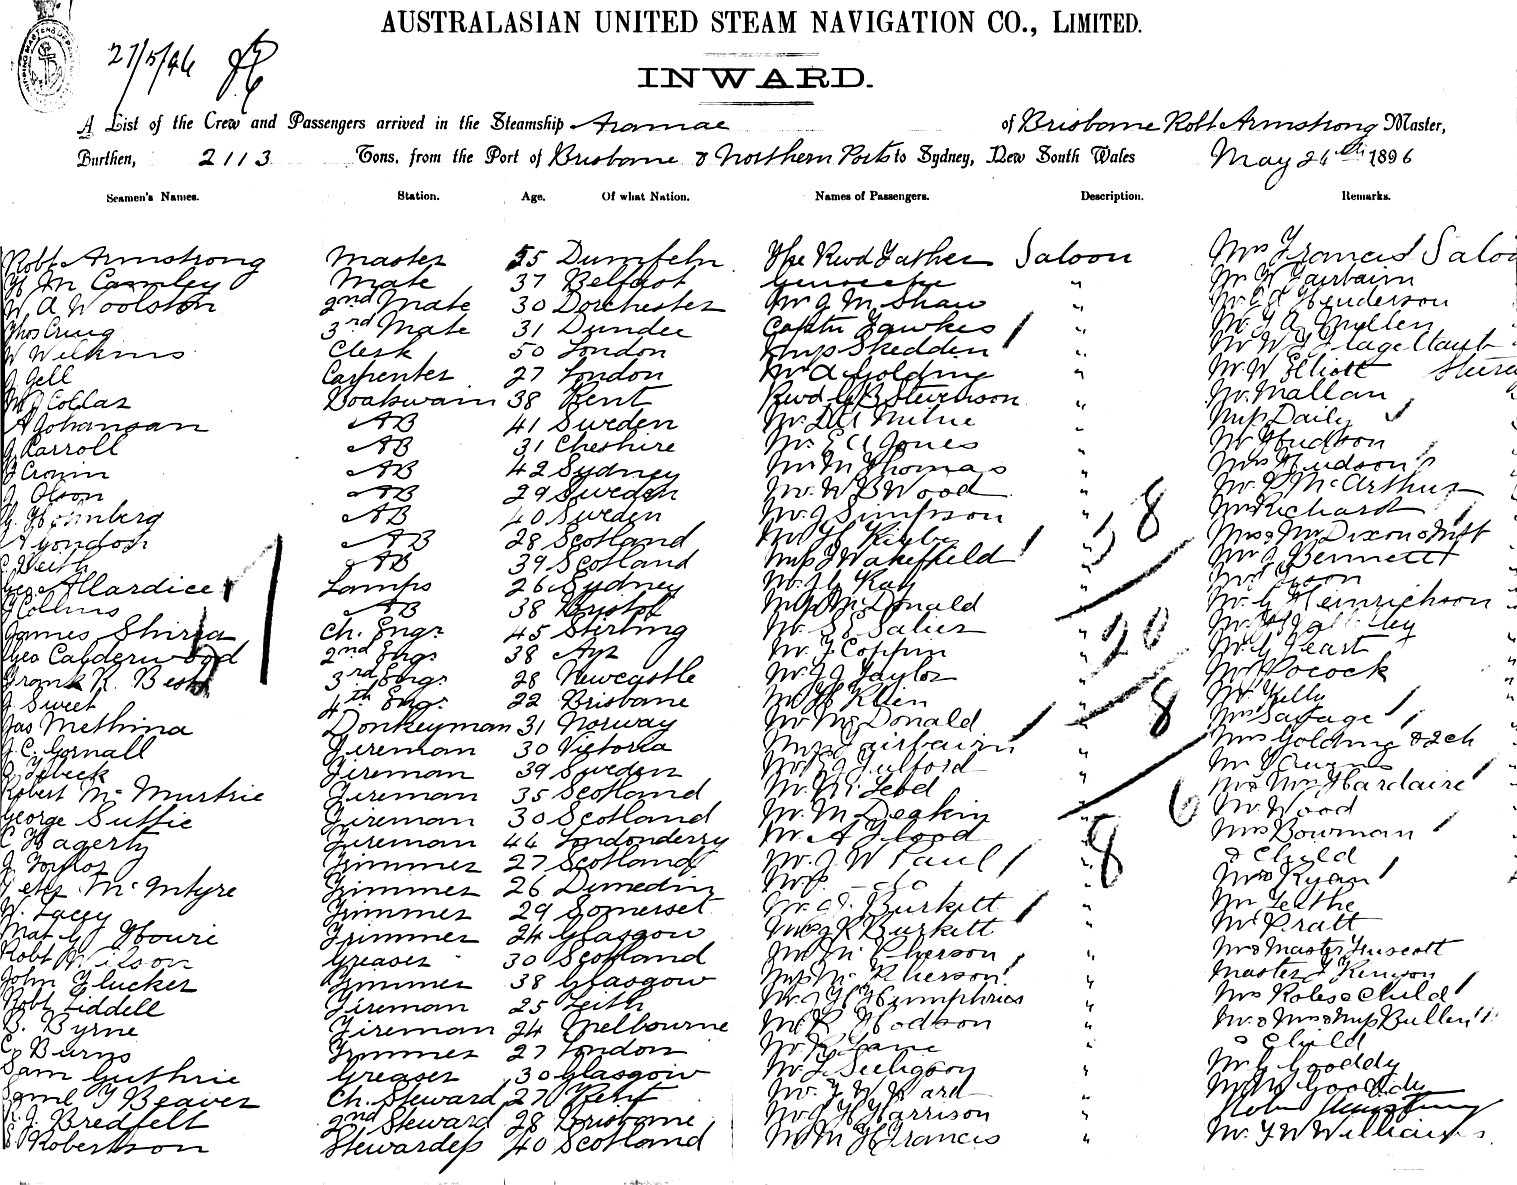 AUSTRALASIAN UNITED STEAM NAVIGATION CO., LIMITED.
27/5/96
INWARD.
A List of the Crew and Passengers arrived in the Steamship Aramac of Brisbane Robt Armstrong Master,
Burthen, 2113 Tons, from the Port of Brisbane & Northern Ports to Sydney, New South Wales May 26th 1896
Seamen's Names. Station. Age. Of what Nation. Names of Passengers. Description. Remarks.
Robt Armstrong Master 55 The Revd Father Saloon Mrs Francis Saloon
Mate 37 Belfast " Mr Fairbairn
W A Woolston 2nd Mate 30 Dorchester Mr G M Shaw " Henderson
Thos Craig 3rd Mate 31 Dundee Captn Fawkes " Mullen
W Wilkins Clerk 50 London Miss Skedden "
J Jell Carpenter 27 London Mr A Golding " Mr W Elliott
Collar Boatswain 38 Kent Revd G B Stevenson " Mr Mallan
A Johansan AB 41 Sweden Mr Milne " Miss Daily
J Carroll AB 31 Cheshire Mr E A Jones " Mr Hudson
Cronin AB 42 Sydney Mr M Thomas " Mrs Hudson
J Olson AB 29 Sweden Mr W B Wood " Mr P McArthur
Holmberg AB 40 Sweden Mr J Simpson " 8 Mr Richards
A AB 28 Scotland Mr H " Mr & Mrs Dixon & Inft
AB 39 Scotland Miss J Wakefield " Mr J Bennett
Geo Allardice Lamps 26 Sydney Mr Kay "
Collins AB 38 Bristol McDonald Mr G Heinrichson
James Shirra Ch. Engr 45 Stirling Mr S E Salier " 20
Geo Calderwood 2nd Engr 38 Ayr Mr F Coffin " Mr G Yeast
Frank R. Best 3rd Engr 28 Newcastle Mr J J Taylor " Mr Pocock
J Sweet 4th Engr 22 Brisbane Mr H Klein " 8 Mr Kelly
Jas Methina Donkeyman 31 Norway Mr McDonald " Mrs Savage
J C Gornall Fireman 30 Victoria Miss Fairbairn " Mrs Golding & 2 ch
Fireman 39 Sweden Mr Fulford " Mr Owens
Robert McMurtrie Fireman 35 Scotland Mr " Mr & Mrs Hardaire
George Suttie Fireman 30 Scotland Mr M Deakin " 6 Mr Wood
C Hagerty Fireman 44 Londonderry Mr A Flood 8 Mrs Bowman
J Taylor Trimmer 27 Scotland Mr J W Paul " & Child
Peter McIntyre Trimmer 26 Dunedin " Mrs Ryan
W. Lacey Trimmer 29 Somerset Mr Burkitt " Mr Leathe
Howie Trimmer 24 Glasgow Burkitt " Mr Pratt
Robt Wilson Greaser 30 Scotland Mr McPherson " Mr & Master Truscott
John Flucker Trimmer 38 Glasgow Miss McPherson " Master J Kenyon
Robt Liddell Fireman 25 Leith Humphries " Mrs Roles & Child
Byrne Fireman 24 Melbourne Mr R Hodson " Mr & Mrs & Miss Bullen
Burns Trimmer 27 London Mr R Lane " & Child
Sam Guthrie Greaser 30 Glasgow Mr L Seligson " Mr G Gooddy
Saml J Beaver Ch. Steward 27 Kent Mr F W Ward "
Bredfelt 2nd Steward 28 Brisbane Harrison " Robt Armstrong
Robertson Stewardess 40 Scotland Mr M J Francis " Mr F W Williams